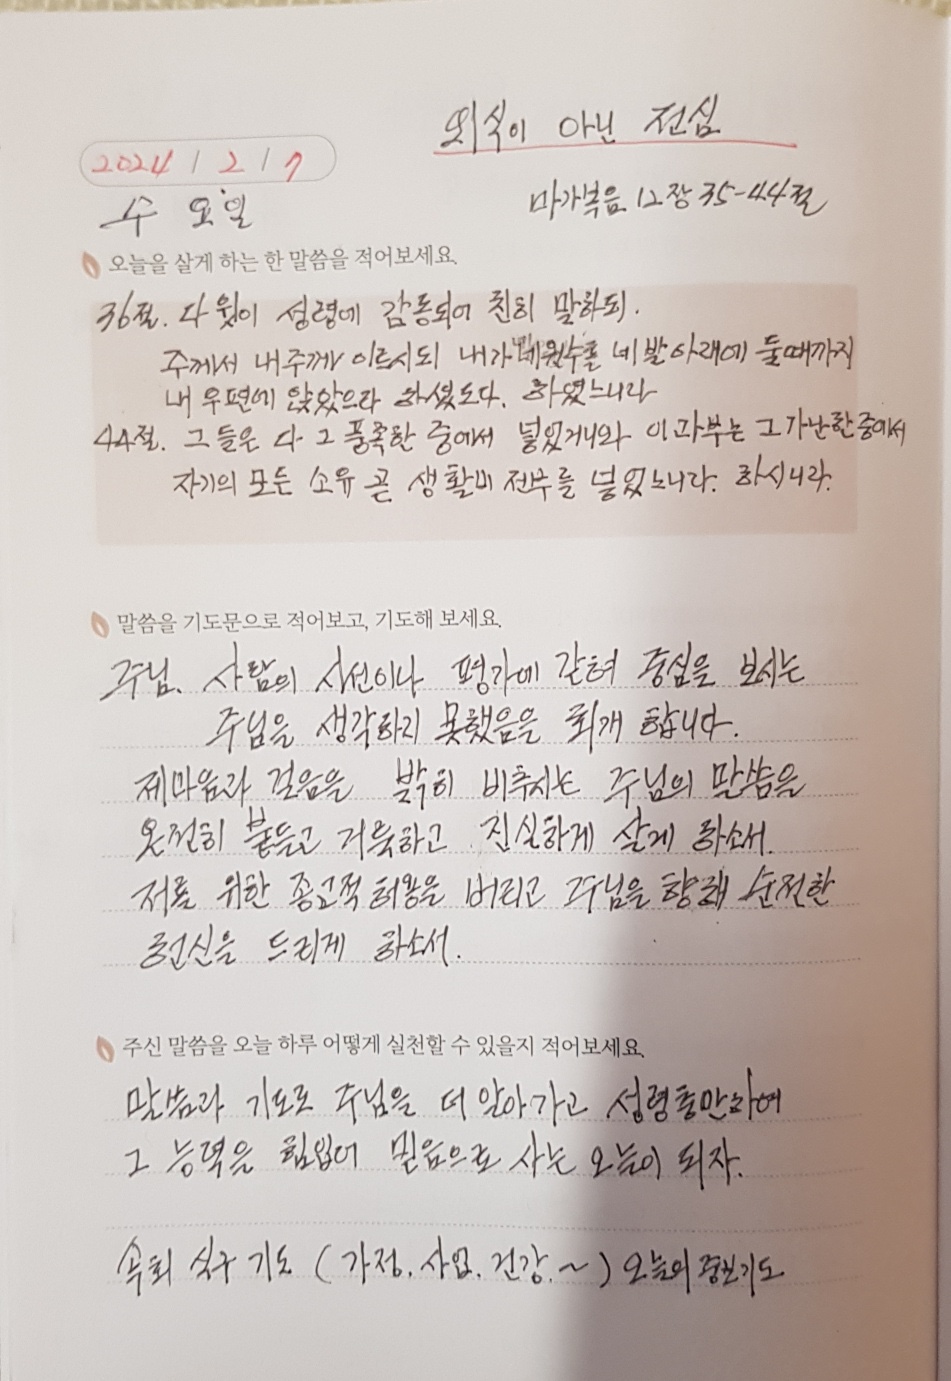 외식이 아닌 전심
2024 / 2 / 7
수요일
마가복음 12장 35-44절
오늘을 살게 하는 한 말씀을 적어보세요.
36절. 다윗이 성령에 감동되어 친히 말하되.
주께서 내 주께 이르시되 내가 네 원수를 네 발 아래에 둘 때까지
내 우편에 앉았으라 하셨도다. 하였느니라
44절. 그들은 다 그 풍족한 중에서 넣었거니와 이 과부는 그 가난한 중에서
자기의 모든 소유 곧 생활비 전부를 넣었느니라. 하시니라.
말씀을 기도문으로 적어보고, 기도해 보세요.
주님. 사람의 시선이나 평가에 갇혀 중심을 보시는
주님을 생각하지 못했음을 회개 합니다.
제 마음과 걸음을 밝히 비추시는 주님의 말씀을
온전히 붙들고 거룩하고 진실하게 살게 하소서.
저를 위한 종교적 허영을 버리고 주님을 향해 순전한
헌신을 드리게 하소서.
주신 말씀을 오늘 하루 어떻게 실천할 수 있을지 적어보세요.
말씀과 기도로 주님을 더 알아가고 성령충만하여
그 능력을 힘입어 믿음으로 사는 오늘이 되자.
속회 식구 기도 (가정. 사업. 건강. ~) 오늘의 중보기도